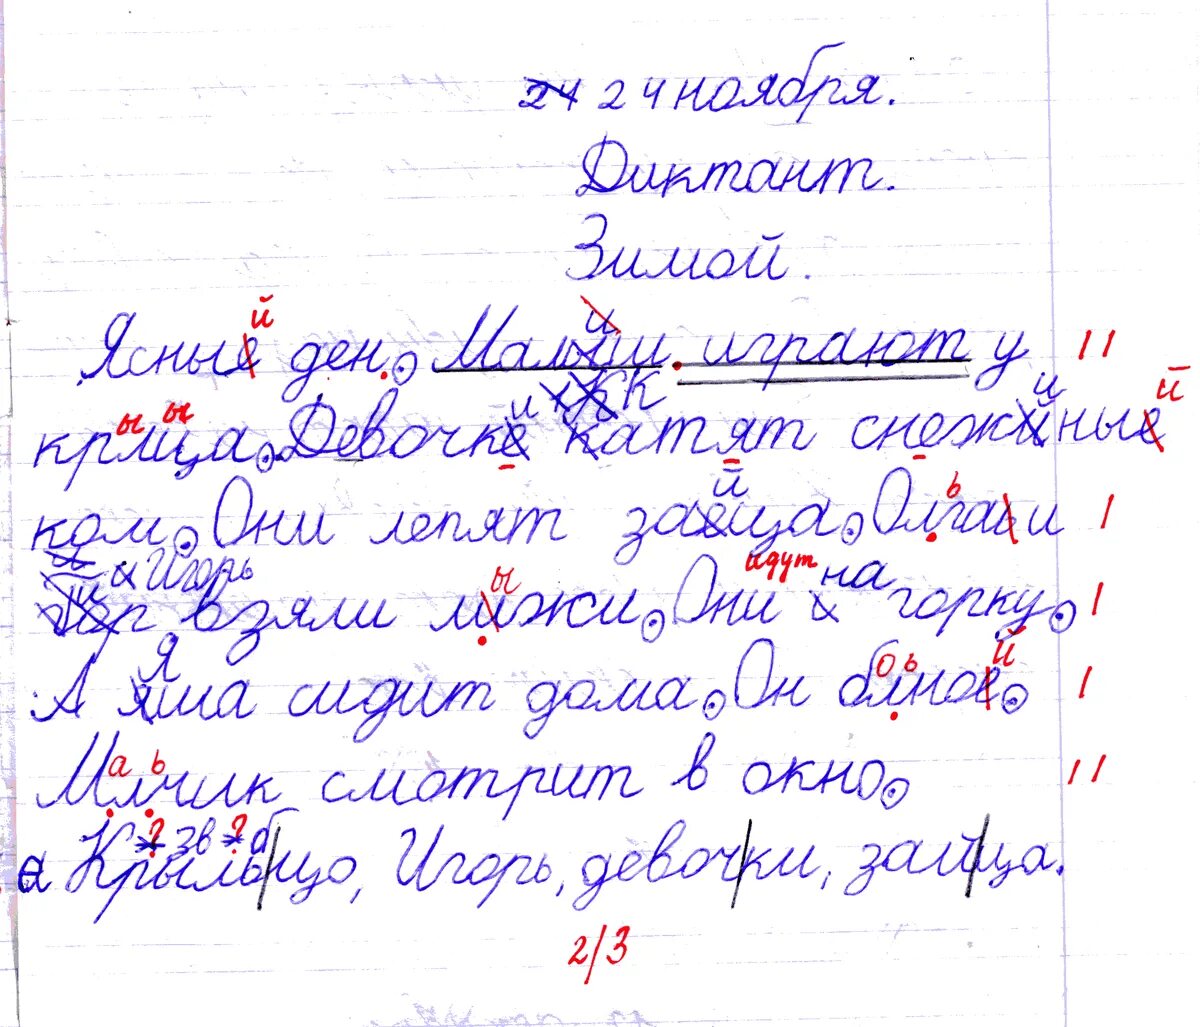 24 24 ноября.
Диктант.
Зимой.
Ясные ден. играют у
крлца. Девочки катят снежиные
ком. Они лепят зайца. Олгаь и
и Игорь
взяли лижи. Они на горку.
А Яша сидит дома. Он блное.
Млчик смотрит в окно.
Крыльцо, Игорь, девочки, зайца.
2/3